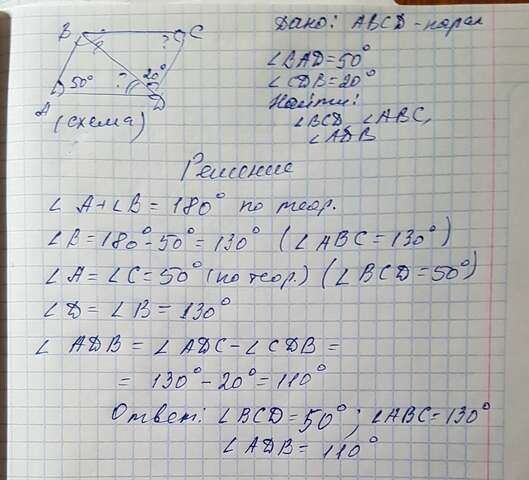 B ? C
50° ? 20°
A D
(схема)
Дано: ABCD - парал
∠BAD=50°
∠CDB=20°
Найти:
∠BCD, ∠ABC,
∠ADB
Решение
∠A+∠B = 180° по теор.
∠B=180°-50°=130° (∠ABC=130°)
∠A=∠C=50° (по теор.) (∠BCD=50°)
∠D=∠B=130°
∠ADB = ∠ADC-∠CDB =
= 130°-20°=110°
Ответ: ∠BCD=50°; ∠ABC=130°
∠ADB = 110°